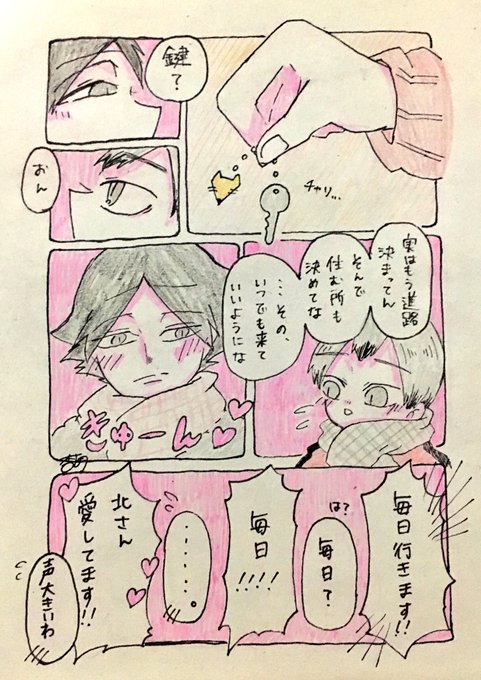 鍵?
チャリ…
おん
実はもう進路
決まってん
そんで
住む所も
決めてな
…その、
いつでも来て
いいようにな
きゅーん
毎日行きます!!
は?
毎日?
毎日!!!!
……。
北さん
愛してます!!
声大きいわ